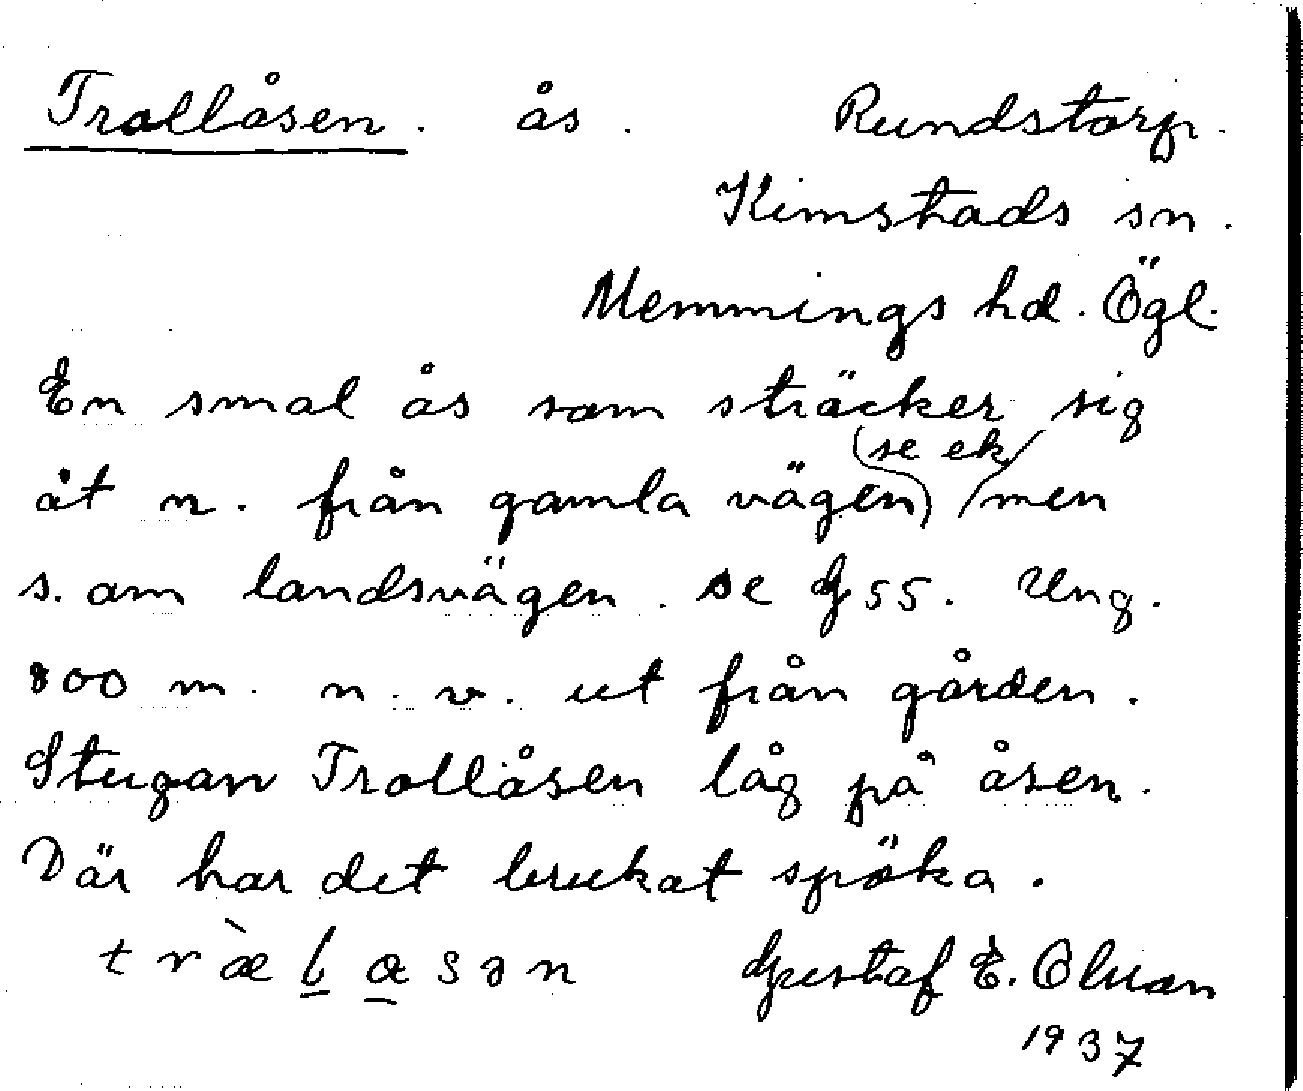 Trollåsen. ås. Rundstorp.
Kimstads sn.
Memmings hd. Ögl.
En smal ås som sträcker sig
(se ek)
åt n. från gamla vägen men
s. om landsvägen. se G 55. Ung.
800 m. n. v. ut från gården.
Stugan Trollåsen låg på åsen.
Där har det brukat spöka.
Gustaf E. Olson
1937